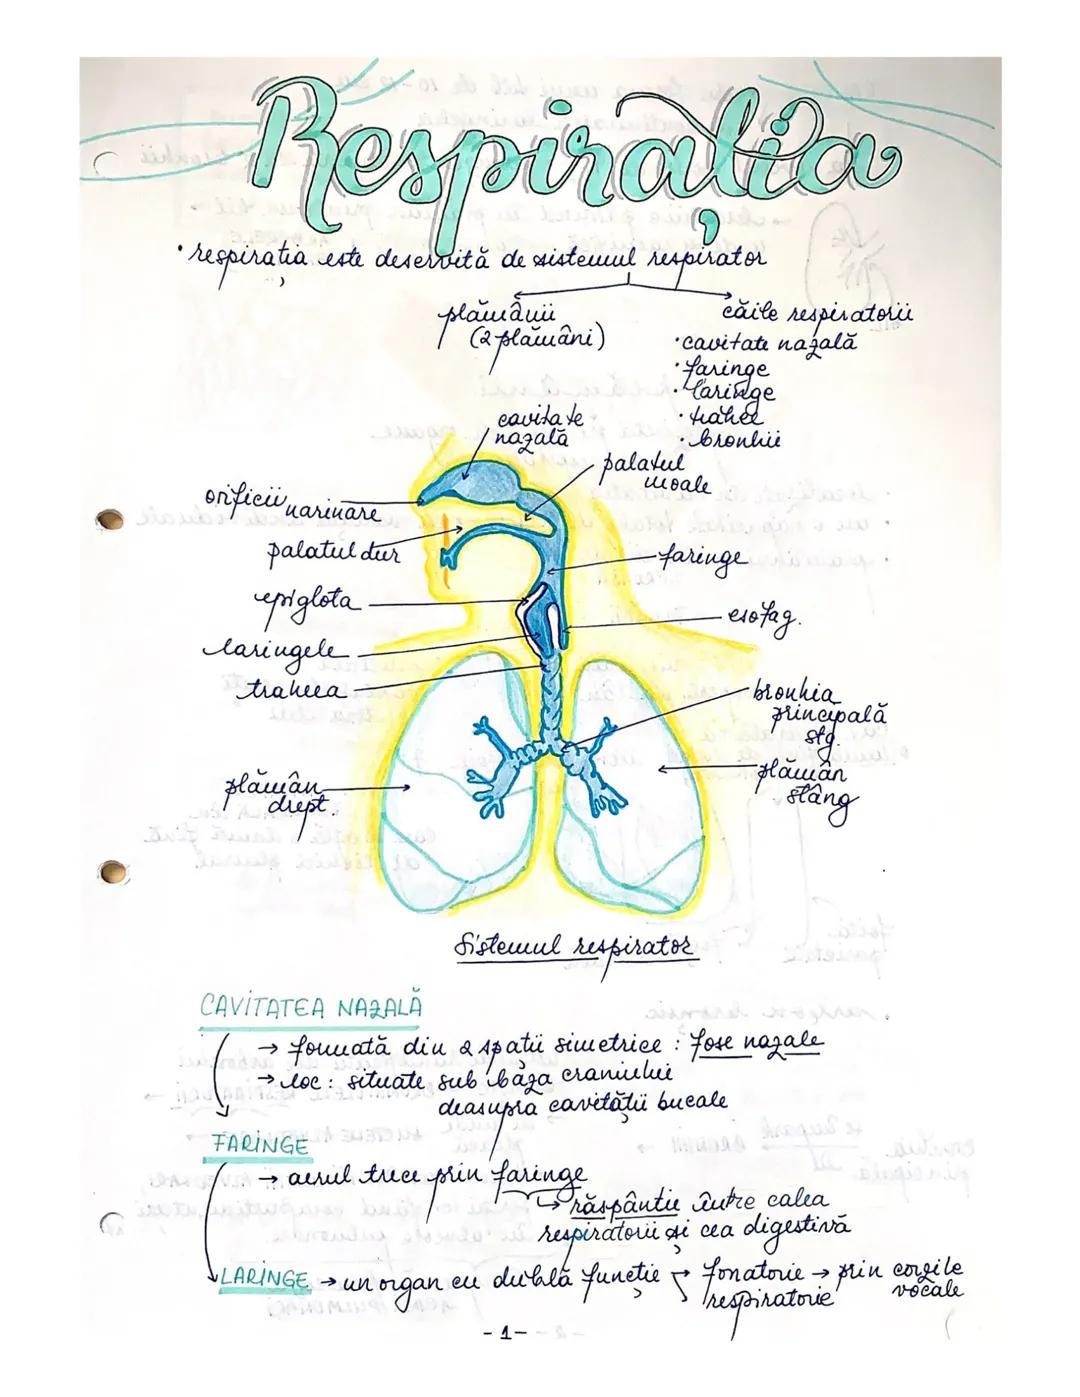 Respirația
• respirația este deservită de sistemul respirator
plămânii
(2 plămâni)
căile respiratorii
• cavitate nazală
• faringe
• laringe
• trahee
• bronhii
cavitate
nazală
palatul
moale
orificii narinare
palatul dur
faringe
epiglota
esofag.
laringele
traheea
bronhia
principală
stg.
plămân
drept.
plămân
stâng
Sistemul respirator
CAVITATEA NAZALĂ
→ formată din 2 spații simetrice : fose nazale
→ loc : situate sub baza craniului
deasupra cavității bucale
FARINGE
→ aerul trece prin faringe
↳ răspântie între calea
respiratorii și cea digestivă
LARINGE → un organ cu dublă funcție → fonatorie → prin corzile
vocale
respiratorie
- 1 -